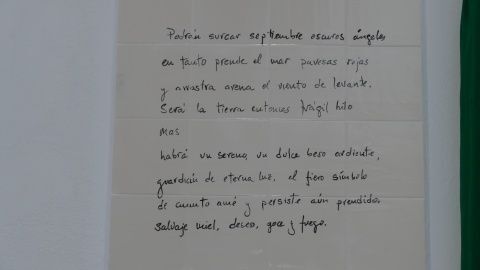 Podrán surcar septiembre oscuros ángeles
en tanto prende el mar pavesas rojas
y arrastra arena el viento de levante.
Será la tierra entonces frágil hilo
mas
habrá un sereno, un dulce beso ardiente,
guardián de eterna luz, el fiero símbolo
de cuanto amé y persiste aún prendido.
salvaje miel, deseo, goce y fuego.